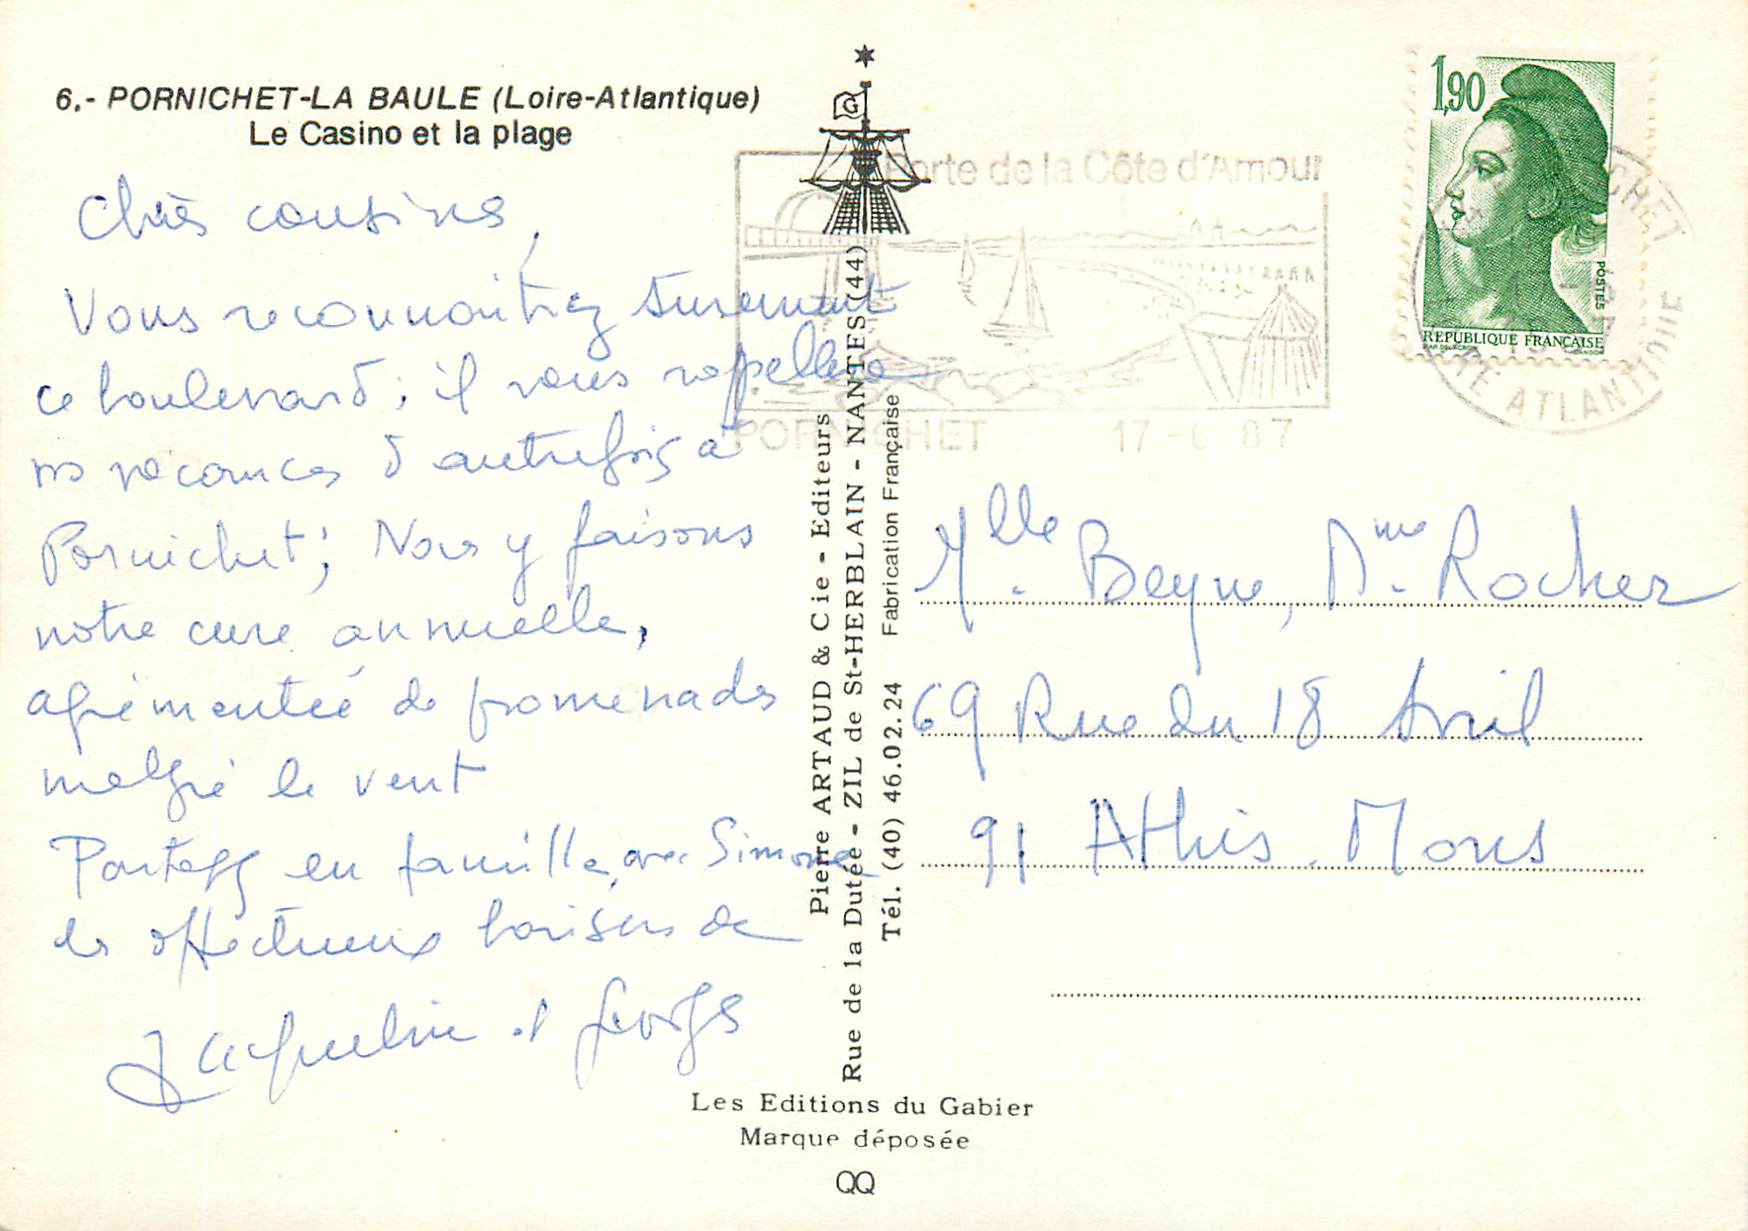 6.- PORNICHET-LA BAULE (Loire-Atlantique)
Le Casino et la plage
Chers cousins,
Vous reconnaitrez surement
ce boulevard; il vous rappellera
nos vacances d'autrefois à
Pornichet; Nous y faisons
notre cure annuelle,
agrémentée de promenades
malgré le vent
Partagez en famille, avec Simone
les affectueux baisers de
Jacqueline et Georges
Pierre ARTAUD & Cie - Editeurs
Rue de la Dutée - ZIL de St-HERBLAIN - NANTES (44)
Tél. (40) 46.02.24 Fabrication Française
Les Editions du Gabier
Marque déposée
QQ
Porte de la Côte d'Amour
PORNICHET 17-6 87
1,90
POSTES
REPUBLIQUE FRANÇAISE
CHET
RE ATLANTIQUE
Mlle. Beyne, Mme. Rocher
69 Rue du 18 Avril
91 Athis-Mons